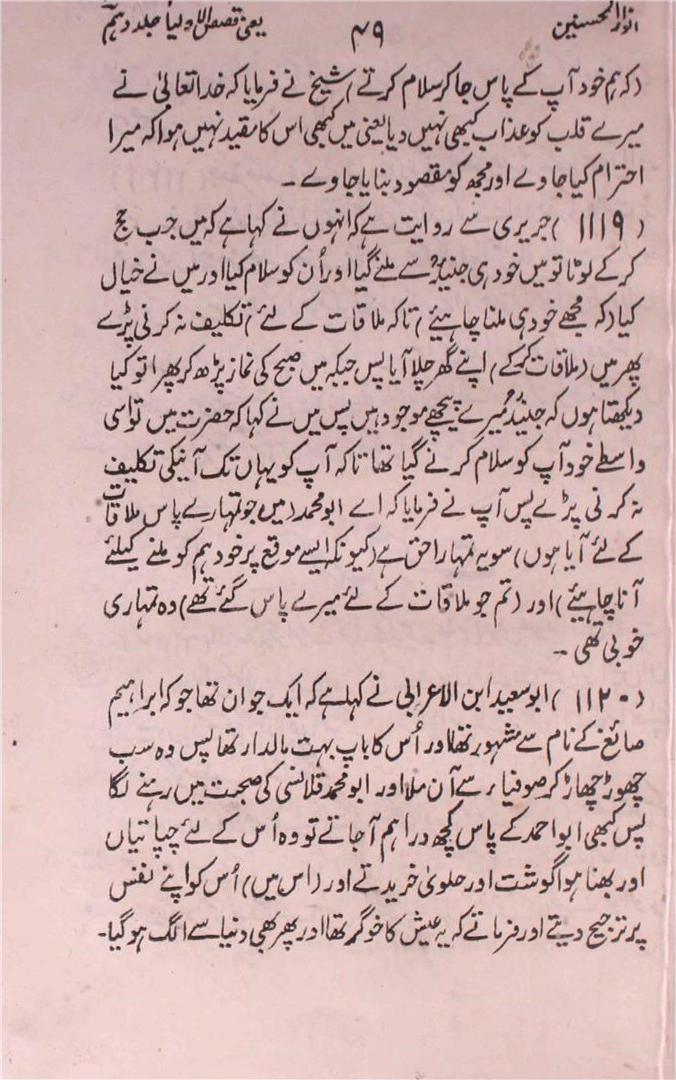 انوار المحسنین ۴۹ یعنی قصص الاولیا جلد دہم
(کہ ہم خود آپ کے پاس جاکر سلام کرتے) شیخ نے فرمایا کہ خدا تعالیٰ نے
میرے قلب کو عذاب کبھی نہیں دیا یعنی میں کبھی اس کا مقید نہیں ہوا کہ میرا
احترام کیا جاوے اور مجھ کو مقصود بنایا جاوے ۔
(۱۱۱۹) جریری سے روایت ہے کہ انہوں نے کہا ہے کہ میں جب حج
کر کے لوٹا تو میں خود ہی جنیدؒ سے ملنے گیا اور اُن کو سلام کیا اور میں نے خیال
کیا (کہ مجھے خود ہی ملنا چاہیئے) تاکہ ملاقات کے لئے (تکلیف نہ کرنی پڑے
پھر میں (ملاقات کرکے) اپنے گھر چلا آیا پس جبکہ میں صبح کی نماز پڑھ کر پھرا تو کیا
دیکھتا ہوں کہ جنیدؒ میرے پیچھے موجود ہیں پس میں نے کہا کہ حضرت میں تو اسی
واسطے خود آپ کو سلام کرنے گیا تھا تاکہ آپ کو یہاں تک آنیکی تکلیف
نہ کرنی پڑے پس آپ نے فرمایا کہ اے ابو محمد (میں جو تمہارے پاس ملاقات
کے لئے آیا ہوں) سو یہ تمہارا حق ہے (کیونکہ ایسے موقع پر خود ہم کو ملنے کیلئے
آنا چاہیئے) اور (تم جو ملاقات کے لئے میرے پاس گئے تھے) وہ تمہاری
خوبی تھی ۔
(۱۱۲۰) ابو سعید ابن الاعرابی نے کہا ہے کہ ایک جوان تھا جو کہ ابراہیم
صائغ کے نام سے مشہور تھا اور اُس کا باپ بہت مالدار تھا پس وہ سب
چھوڑ چھاڑ کر صوفیاء سے آن ملا اور ابو محمد قلانسی کی صحبت میں رہنے لگا
پس کبھی ابو احمد کے پاس کچھ دراہم آجاتے تو وہ اُس کے لئے چپاتیاں
اور بھنا ہوا گوشت اور حلویٰ خریدتے اور (اس میں) اُس کو اپنے نفس
پر ترجیح دیتے اور فرماتے کہ یہ عیش کا خوگر تھا اور پھر بھی دنیا سے الگ ہو گیا۔